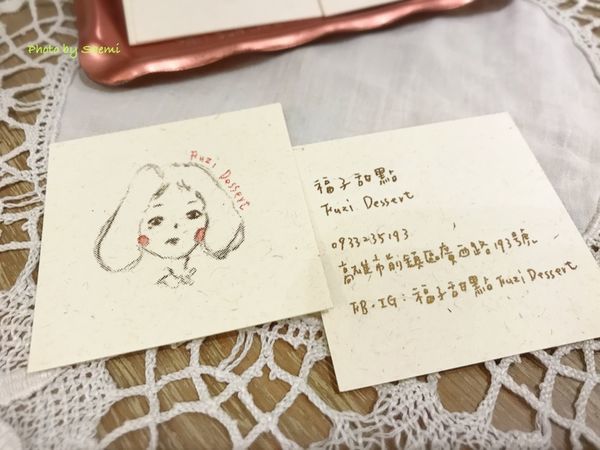 Photo by Suemi
Fuzi Dessert
福子甜點
Fuzi Dessert
0933235193
高雄市前鎮區廣西路193號
FB.IG:福子甜點 Fuzi Dessert